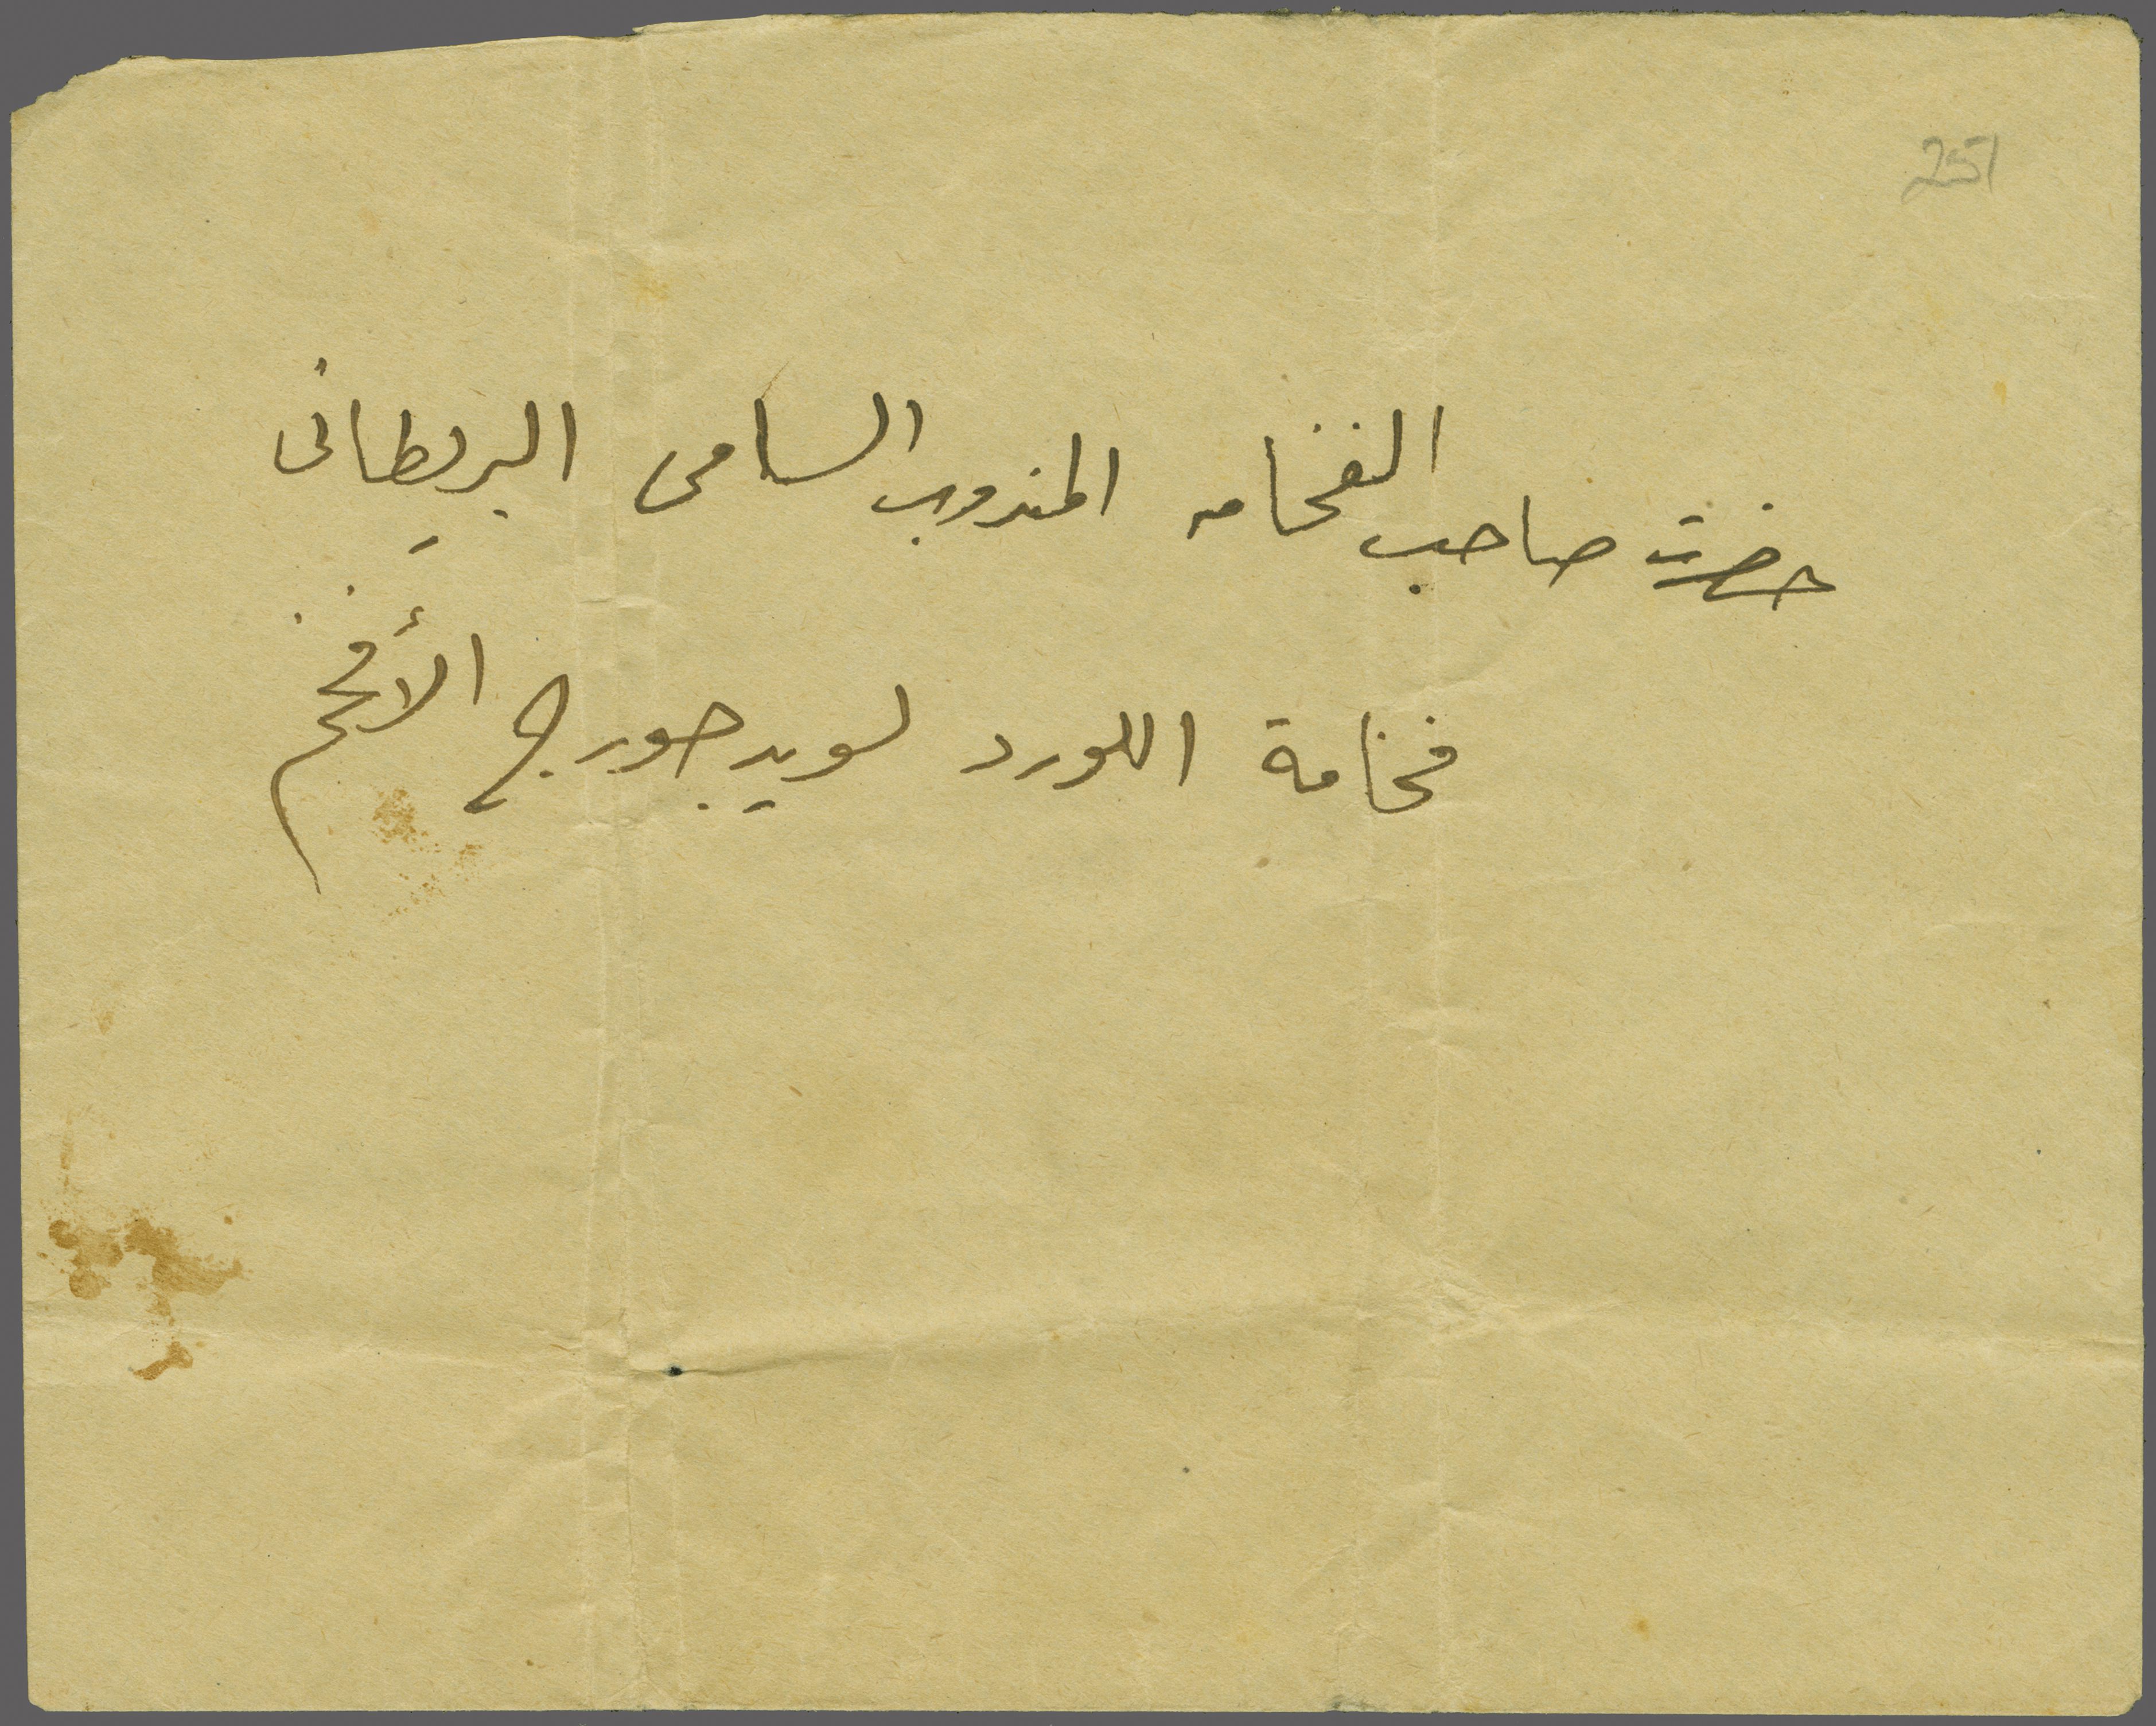 251
حضرت صاحب الفخامه المندوب السامى البريطانى
فخامة اللورد لويد جورج الأفخم